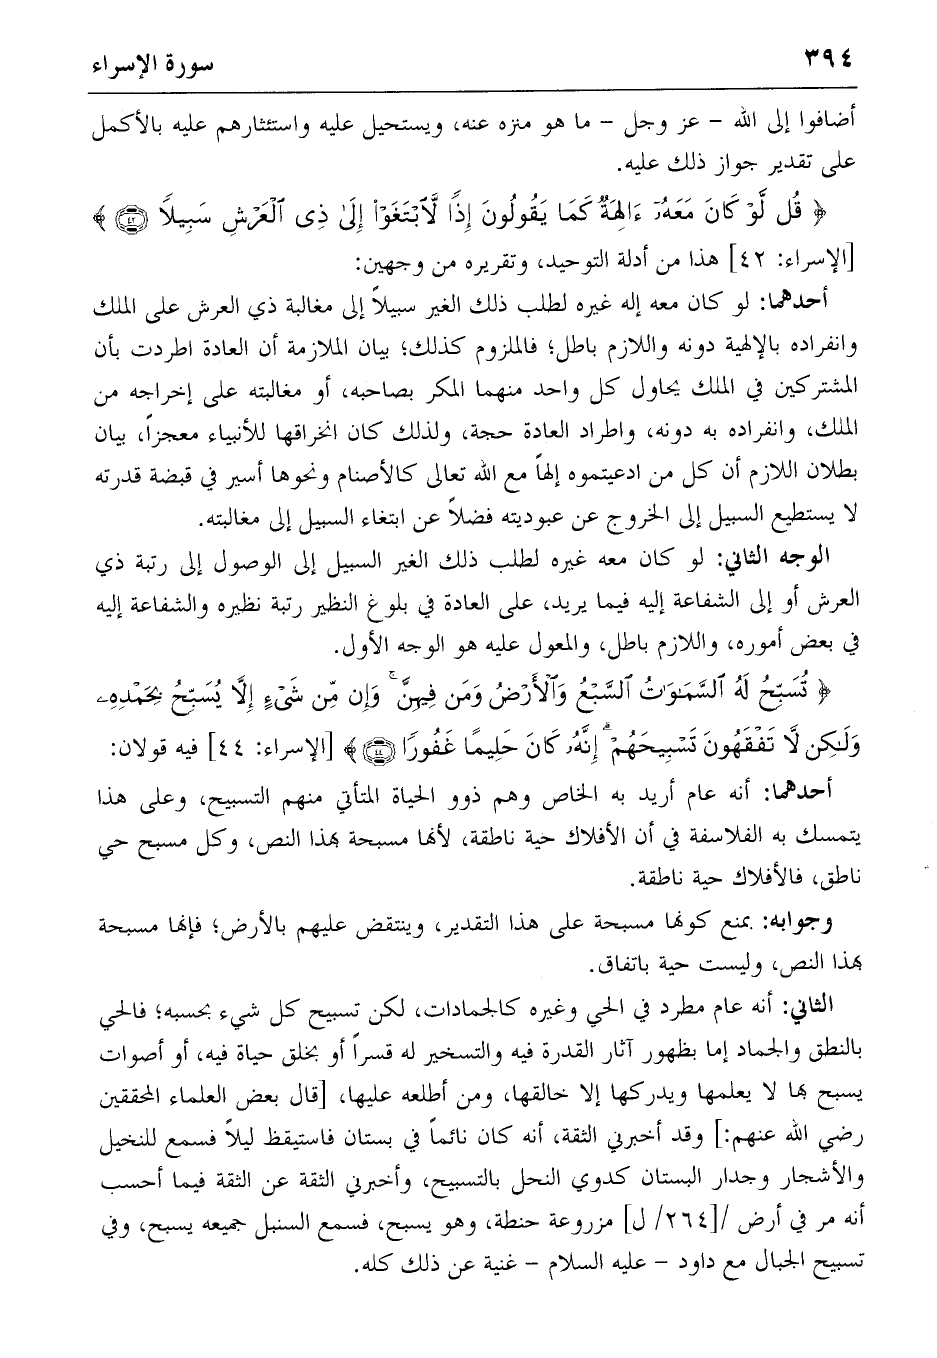 ٣٩٤ سورة الإسراء
أضافوا إلى الله – عز وجل – ما هو منزه عنه، ويستحيل عليه واستئثارهم عليه بالأكمل
على تقدير جواز ذلك عليه.
﴿ قُل لَّوْ كَانَ مَعَهُۥٓ ءَالِهَةٌ كَمَا يَقُولُونَ إِذًا لَّٱبْتَغَوْا۟ إِلَىٰ ذِى ٱلْعَرْشِ سَبِيلًا ٤٢ ﴾
[الإسراء: ٤٢] هذا من أدلة التوحيد، وتقريره من وجهين:
أحدهما: لو كان معه إله غيره لطلب ذلك الغير سبيلاً إلى مغالبة ذي العرش على الملك
وانفراده بالإلهية دونه واللازم باطل؛ فالملزوم كذلك؛ بيان الملازمة أن العادة اطردت بأن
المشتركين في الملك يحاول كل واحد منهما المكر بصاحبه، أو مغالبته على إخراجه من
الملك، وانفراده به دونه، واطراد العادة حجة، ولذلك كان انخراقها للأنبياء معجزاً، بيان
بطلان اللازم أن كل من ادعيتموه إلهاً مع الله تعالى كالأصنام ونحوها أسير في قبضة قدرته
لا يستطيع السبيل إلى الخروج عن عبوديته فضلاً عن ابتغاء السبيل إلى مغالبته.
الوجه الثاني: لو كان معه غيره لطلب ذلك الغير السبيل إلى الوصول إلى رتبة ذي
العرش أو إلى الشفاعة إليه فيما يريد، على العادة في بلوغ النظير رتبة نظيره والشفاعة إليه
في بعض أموره، واللازم باطل، والمعول عليه هو الوجه الأول.
﴿ تُسَبِّحُ لَهُ ٱلسَّمَٰوَٰتُ ٱلسَّبْعُ وَٱلْأَرْضُ وَمَن فِيهِنَّ ۚ وَإِن مِّن شَىْءٍ إِلَّا يُسَبِّحُ بِحَمْدِهِۦ
وَلَٰكِن لَّا تَفْقَهُونَ تَسْبِيحَهُمْ ۗ إِنَّهُۥ كَانَ حَلِيمًا غَفُورًا ٤٤ ﴾ [الإسراء: ٤٤] فيه قولان:
أحدهما: أنه عام أريد به الخاص وهم ذوو الحياة المتأتي منهم التسبيح، وعلى هذا
يتمسك به الفلاسفة في أن الأفلاك حية ناطقة، لأنها مسبحة بهذا النص، وكل مسبح حي
ناطق، فالأفلاك حية ناطقة.
وجوابه: بمنع كونها مسبحة على هذا التقدير، وينتقض عليهم بالأرض؛ فإنها مسبحة
بهذا النص، وليست حية باتفاق.
الثاني: أنه عام مطرد في الحي وغيره كالجمادات، لكن تسبيح كل شيء بحسبه؛ فالحي
بالنطق والجماد إما بظهور آثار القدرة فيه والتسخير له قسراً أو بخلق حياة فيه، أو أصوات
يسبح بها لا يعلمها ويدركها إلا خالقها، ومن أطلعه عليها، [قال بعض العلماء المحققين
رضي الله عنهم:] وقد أخبرني الثقة، أنه كان نائماً في بستان فاستيقظ ليلاً فسمع للنخيل
والأشجار وجدار البستان كدوي النحل بالتسبيح، وأخبرني الثقة عن الثقة فيما أحسب
أنه مر في أرض /[٢٦٤/ ل] مزروعة حنطة، وهو يسبح، فسمع السنبل جميعه يسبح، وفي
تسبيح الجبال مع داود – عليه السلام – غنية عن ذلك كله.